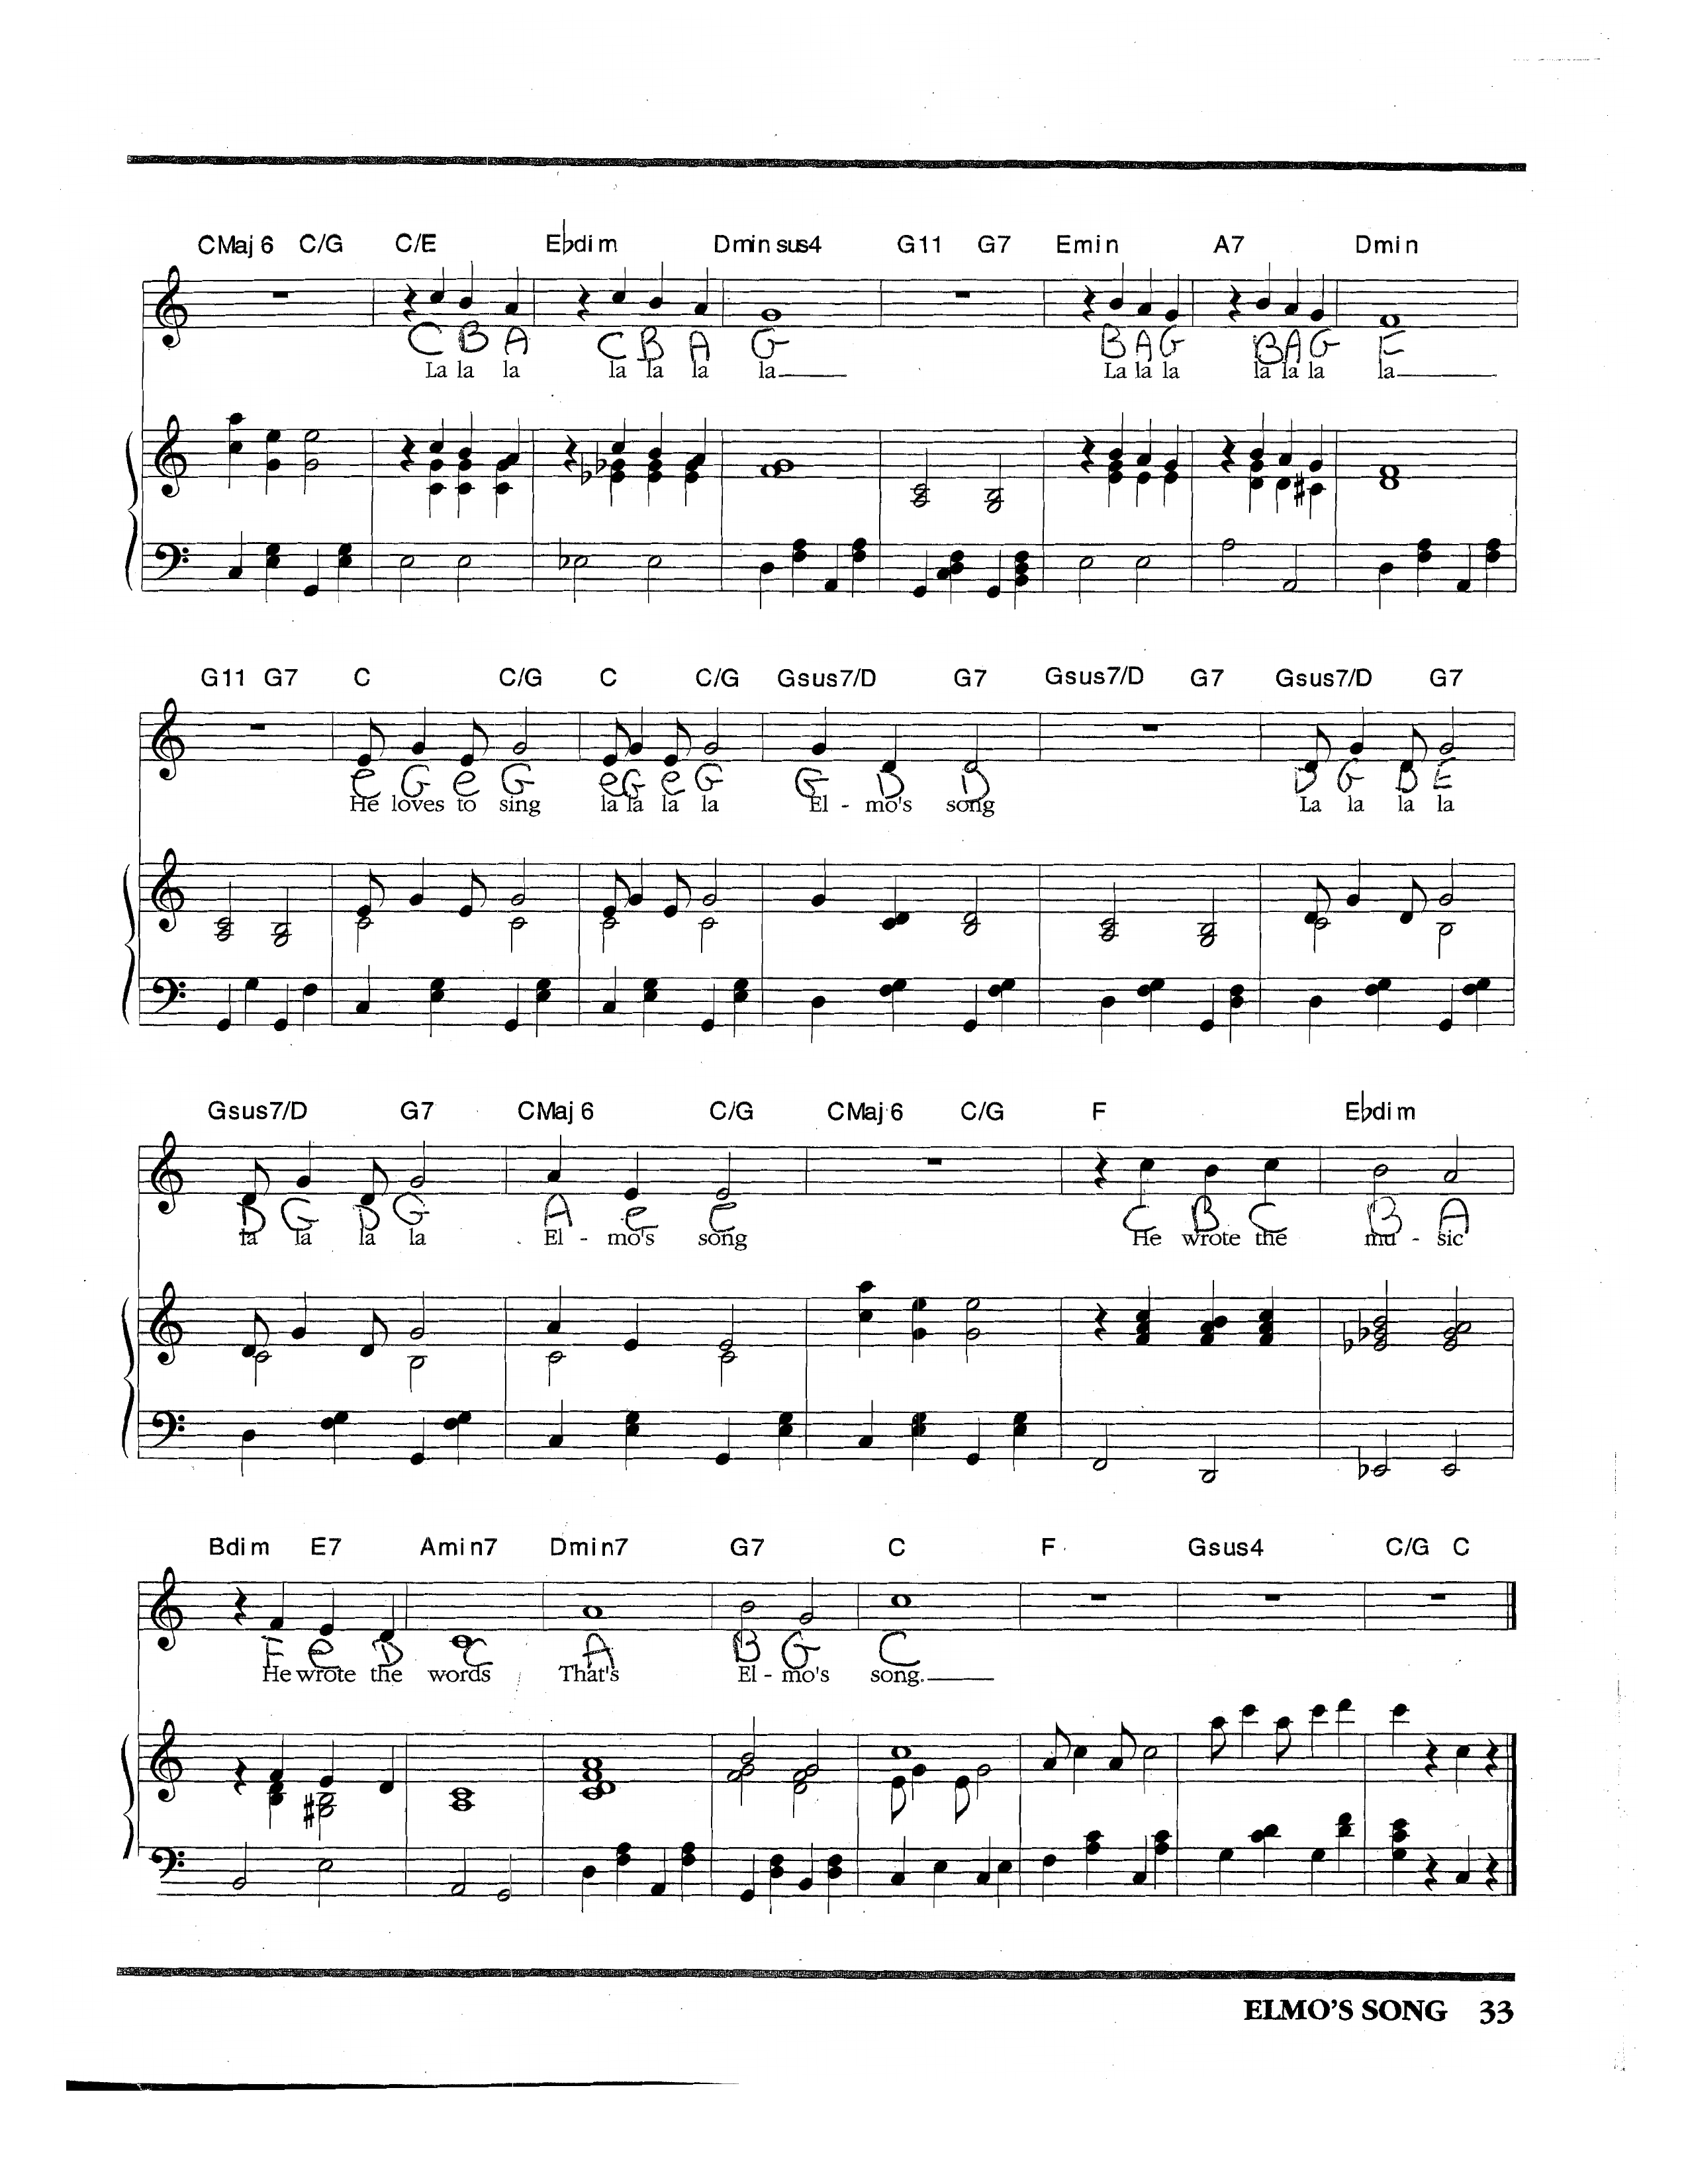 CMaj6 C/G C/E E♭dim Dmin sus4 G11 G7 Emin A7 Dmin
C B A C B A G B A G B A G F
La la la la la la la La la la la la la la
G11 G7 C C/G C C/G Gsus7/D G7 Gsus7/D G7 Gsus7/D G7
e G e G e G e G G D D D G D E
He loves to sing la la la la El - mo's song La la la la
Gsus7/D G7 CMaj6 C/G CMaj6 C/G F E♭dim
D G D G A e e C B C B A
la la la la El - mo's song He wrote the mu - sic
Bdim E7 Amin7 Dmin7 G7 C F Gsus4 C/G C
F e D C A B G C
He wrote the words That's El - mo's song.
ELMO'S SONG 33